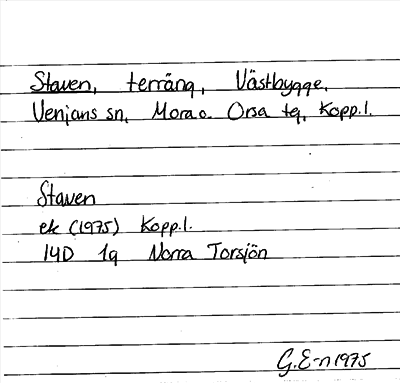 Staven, terräng, Västbygge,
Venjans sn, Mora o. Orsa tg, Kopp.l.
Staven
ek (1975) Kopp.l.
14D 1g Norra Torsjön
G.E-n 1975